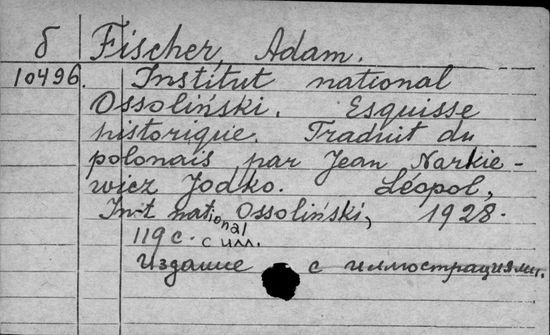 б Fischer, Adam.
10496. Institut national
Ossoliński. Esquisse
historique. Traduit du
polonais par Jean Narkie-
wicz Jodko. Léopol,
In-t national Ossoliński, 1928.
119 с. с илл.
Издание с иллюстрациями.